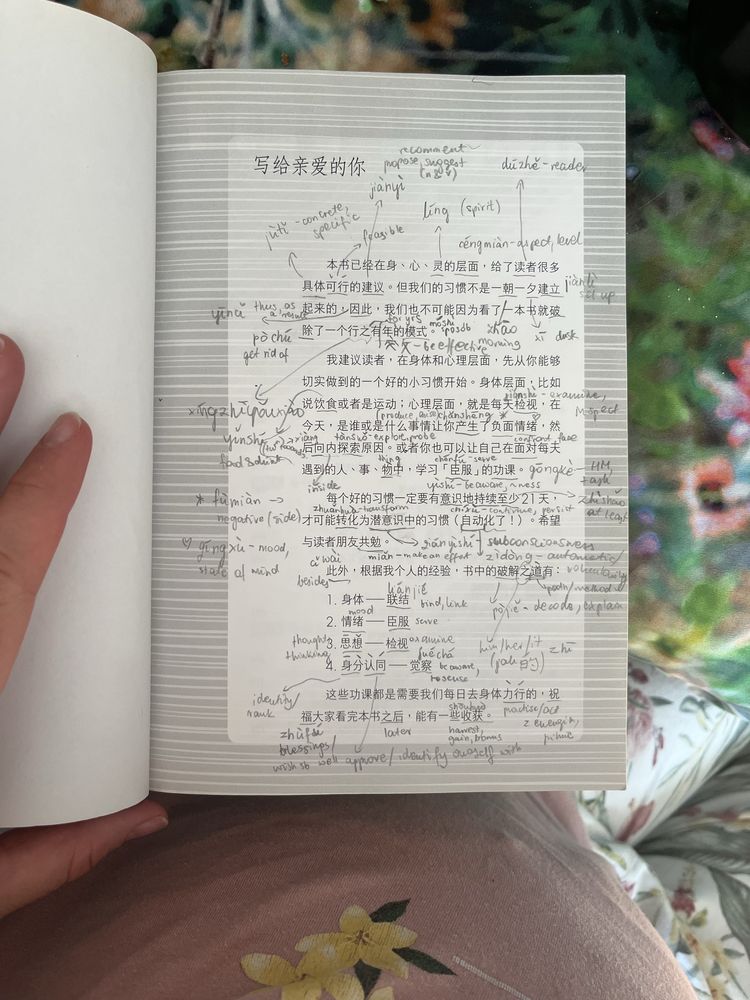 写给亲爱的你
recomment
propose, suggest
(n & v)
dúzhě - reader
jiànyì
jùtǐ - concrete,
specific
feasible
líng (spirit)
céngmiàn - aspect, level
本书已经在身、心、灵的层面，给了读者很多
具体可行的建议。但我们的习惯不是一朝一夕建立
jiànlì
set up
起来的，因此，我们也不可能因为看了一本书就破
yīncǐ
thus, as
a result
除了一个行之有年的模式。
pò chú
get rid of
zhāo
morning
xī
dusk
我建议读者，在身体和心理层面，先从你能够
切实做到的一个好的小习惯开始。身体层面，比如
说饮食或者是运动；心理层面，就是每天检视，在
yǐnshí
food & drink
今天，是谁或是什么事情让你产生了负面情绪，然
tànsuǒ - explore, probe
confront, face
后向内探索原因。或者你也可以让自己在面对每天
thing
chénfú - serve
遇到的人、事、物中，学习「臣服」的功课。
gōngkè - HM,
task
inside
yìshí - be aware, ~ness
* fùmiàn →
negative (side)
每个好的习惯一定要有意识地持续至少21天，
zhìshǎo
at least
zhuǎnhuà - transform
chíxù - continue, persist
才可能转化为潜意识中的习惯（自动化了！）。希望
qíngxù - mood,
state of mind
与读者朋友共勉。
qiányìshí - subconsciousness
miǎn - make an effort
zìdòng - automatic/
cǐ wài
besides
此外，根据我个人的经验，书中的破解之道有：
path/method
pòjiě - decode, explain
liánjié
1. 身体──联结
bind, link
mood
2. 情绪──臣服
serve
thought
thinking
3. 思想──检视
examine
him/her/it
zhī
juéchá
4. 身分认同──觉察
be aware,
to sense
identity/
rank
这些功课都是需要我们每日去身体力行的，祝
practise/act
福大家看完本书之后，能有一些收获。
zhùfú
blessings/
wish sb well
later
shōuhuò
harvest,
gain, bonus
approve/identify oneself with